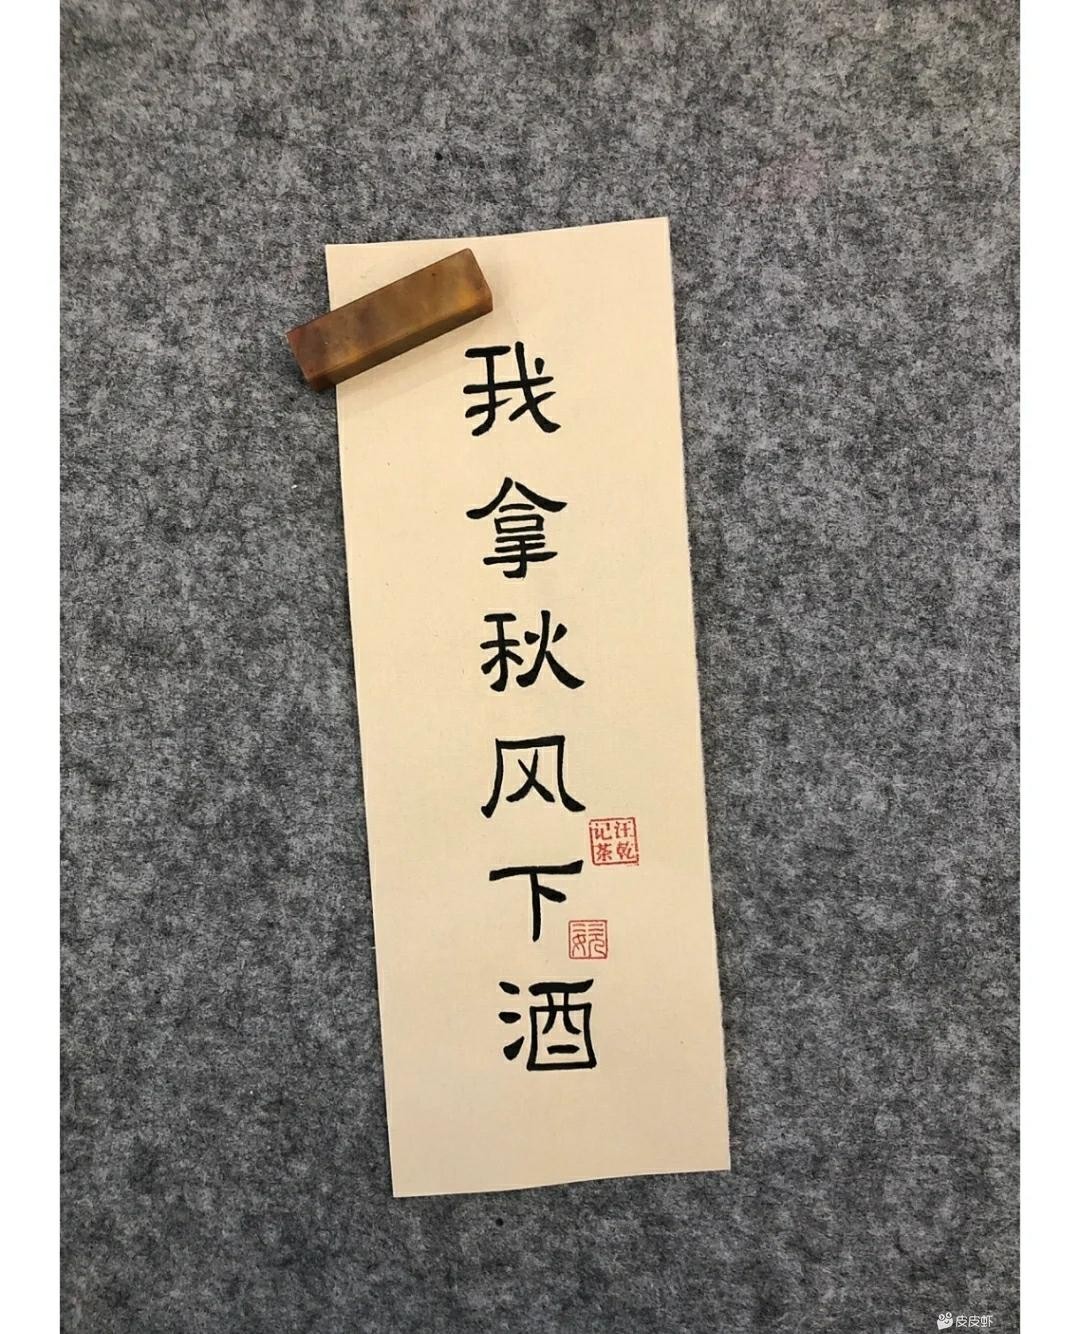 我拿秋风下酒
汪乾
记茶
皮皮虾